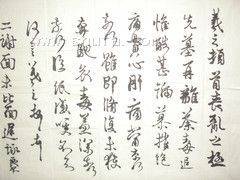 羲之頓首喪亂之極
先墓再離荼毒追
惟酷甚號慕摧絕
痛貫心肝痛當奈何
奈何雖即脩復未獲
奔馳哀毒益深奈何
奈何臨紙感哽不知
何言羲之頓首頓首
二謝面未比面遲詠良